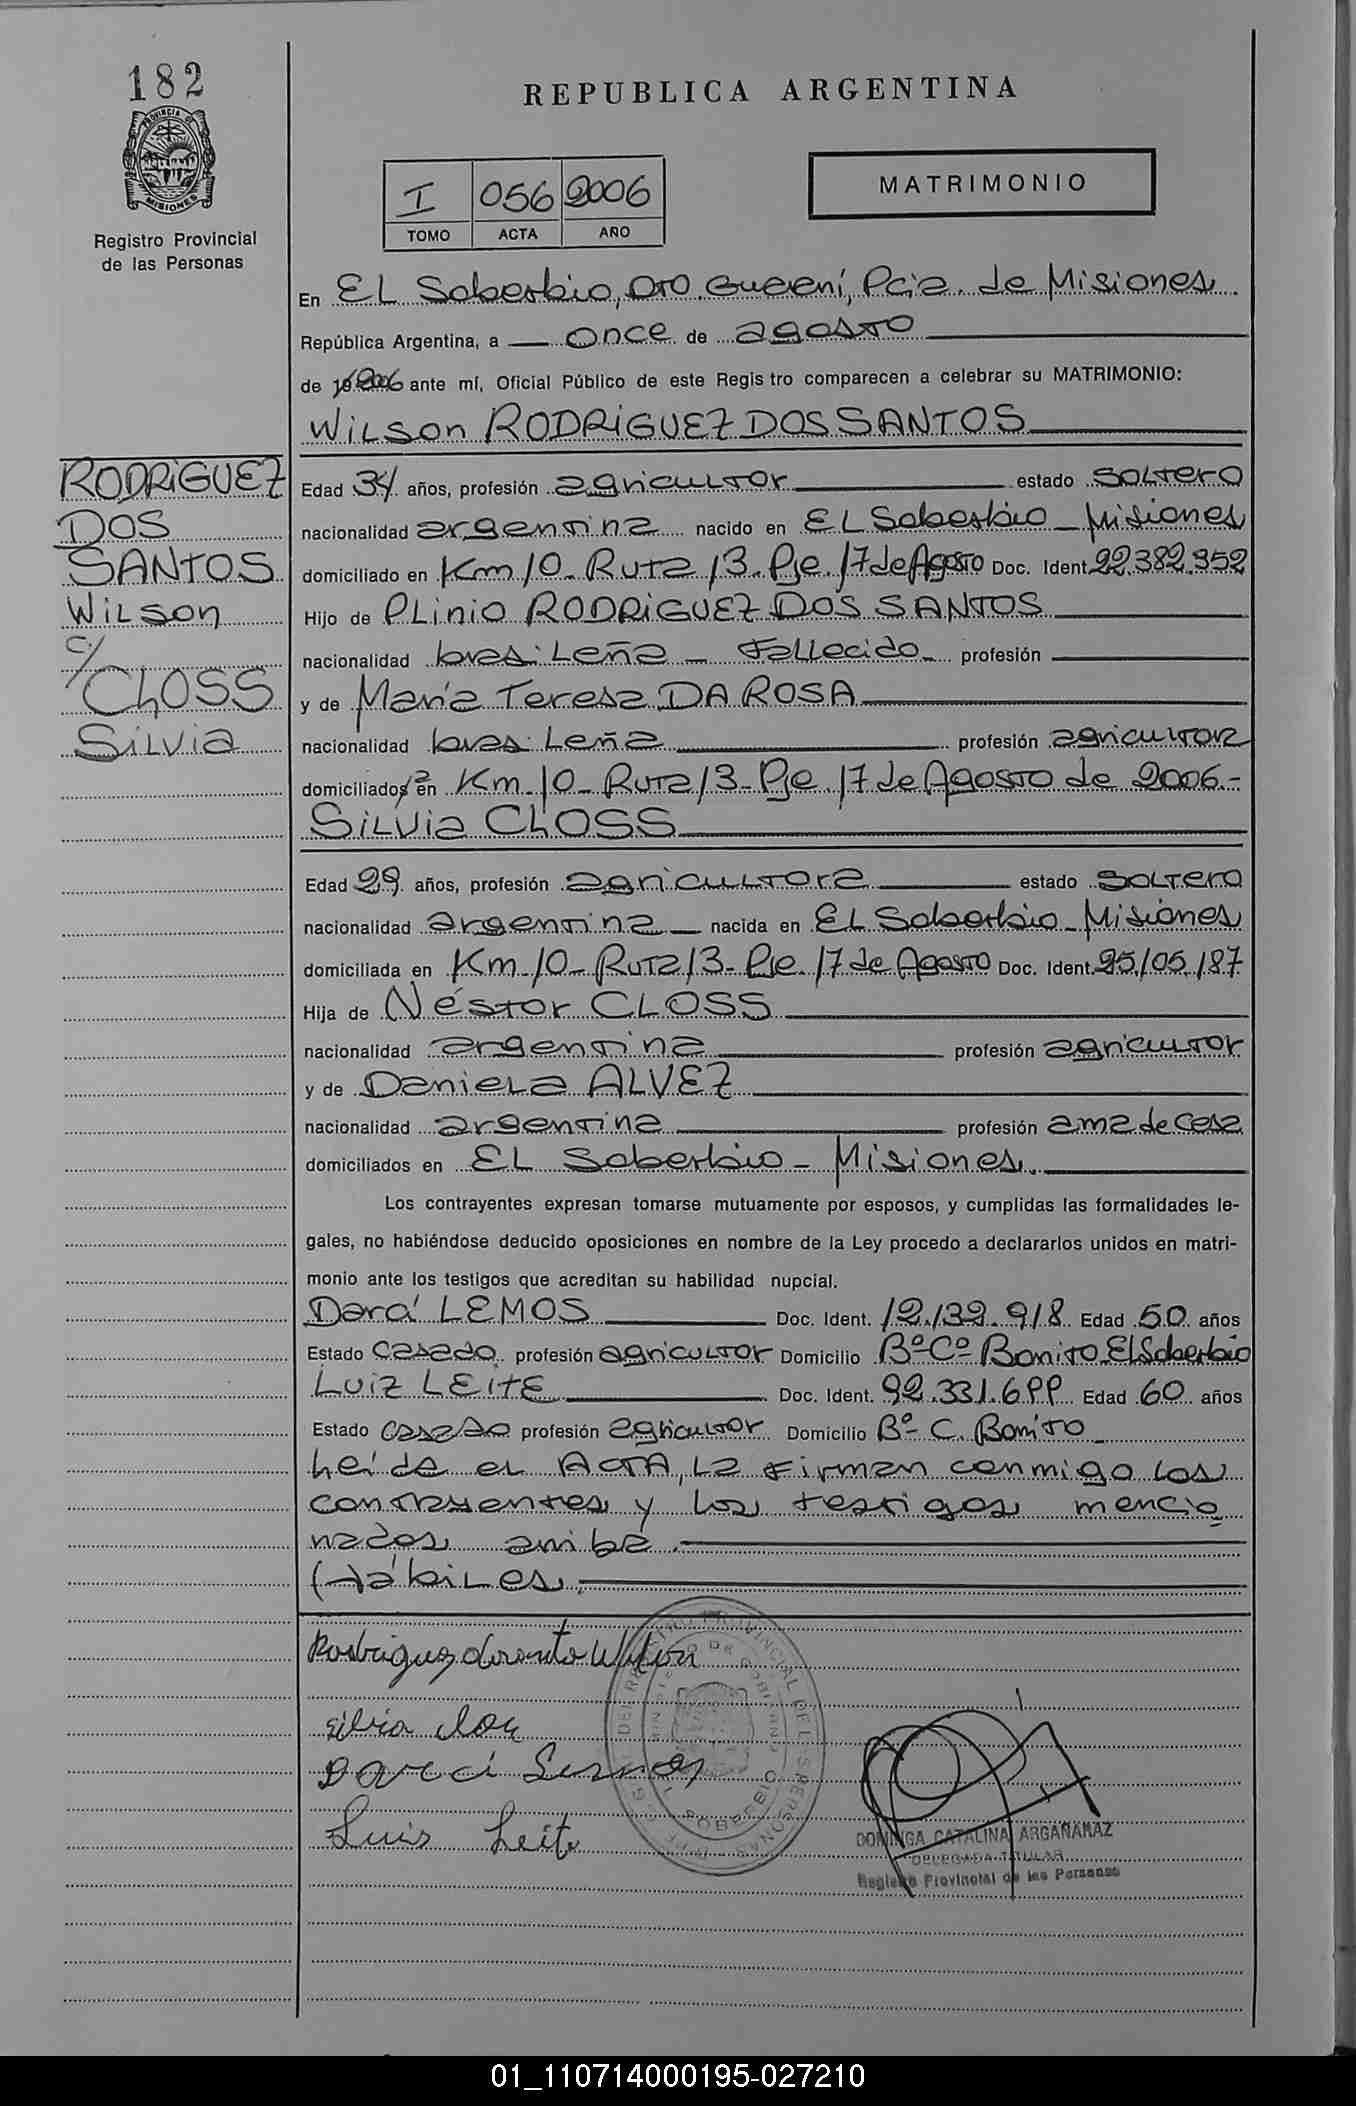 182
REPUBLICA ARGENTINA
PROVINCIA DE MISIONES
Registro Provincial
de las Personas
I 056 2006
TOMO ACTA AÑO
MATRIMONIO
En EL Soberbio, Dto. Guaraní, Pcia. de Misiones
República Argentina, a once de agosto
de 2006 ante mí, Oficial Público de este Registro comparecen a celebrar su MATRIMONIO:
Wilson RODRiGUEZ DOS SANTOS
RODRiGUEZ
DOS
SANTOS
Wilson
c/
CLOSS
Silvia
Edad 34 años, profesión agricultor estado soltero
nacionalidad argentina nacido en EL Soberbio - Misiones
domiciliado en Km 10 - Ruta 13 - Pje. 17 de Agosto Doc. Ident. 22.382.952
Hijo de PLinio RODRiGUEZ DOS SANTOS
nacionalidad brasiLeña - Fallecido - profesión
y de María Teresa DA ROSA
nacionalidad brasiLeña profesión agricultora
domiciliados en Km. 10 - Ruta 13 - Pje 17 de Agosto de 2006.-
Silvia CLOSS
Edad 29 años, profesión agricultora estado soltera
nacionalidad argentina nacida en EL Soberbio - Misiones
domiciliada en Km - 10 - Ruta 13 - Pje. 17 de Agosto Doc. Ident. 25/05/87
Hija de Néstor CLOSS
nacionalidad argentina profesión agricultor
y de DanieLa ALVEZ
nacionalidad argentina profesión ama de casa
domiciliados en EL Soberbio - Misiones
Los contrayentes expresan tomarse mutuamente por esposos, y cumplidas las formalidades le-
gales, no habiéndose deducido oposiciones en nombre de la Ley procedo a declararlos unidos en matri-
monio ante los testigos que acreditan su habilidad nupcial.
Darci LEMOS Doc. Ident. 12.132.918 Edad 50 años
Estado casado profesión agricultor Domicilio Bº Cº Bonito - El Soberbio
Luiz LEITE Doc. Ident. 92.331.699 Edad 60 años
Estado casado profesión agricultor Domicilio Bº - C. Bonito
Leída el ACTA, La firman conmigo los
contrayentes y los testigos mencio
nados arriba.
Hábiles.
Rodriguez dos santos Wilson
silvia closs
Darci Lemos
Luis Leite
DOMINGA CATALINA ARGAÑARAZ
DELEGADA TITULAR
Registro Provincial de las Personas
01_110714000195-027210